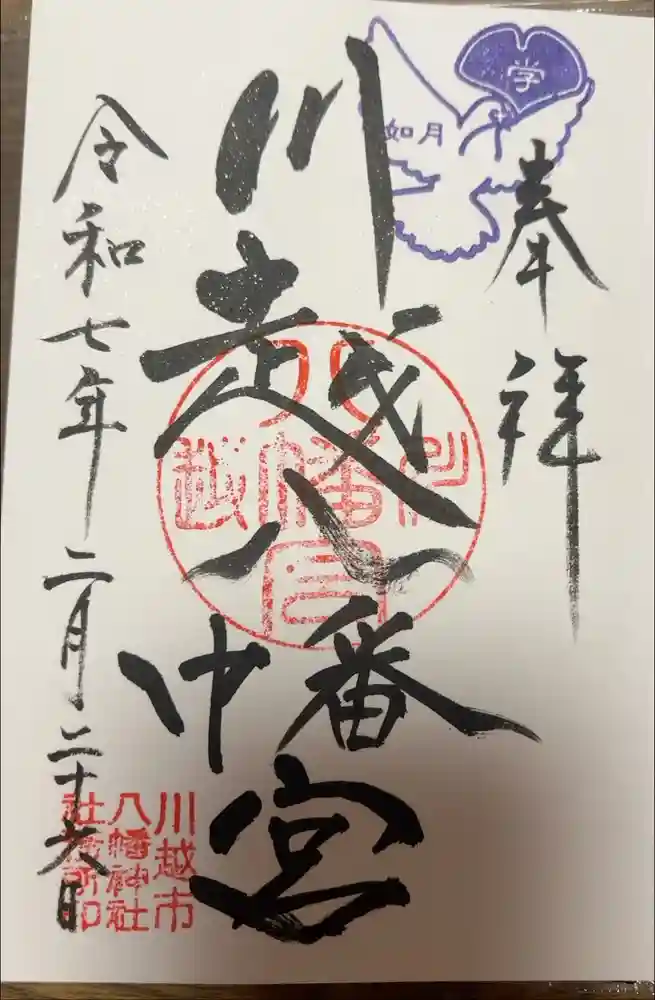 学
如月
奉祥
川越八幡宮
川越
八幡宮
令和七年二月二十六日
川越市
八幡神社
社務所印